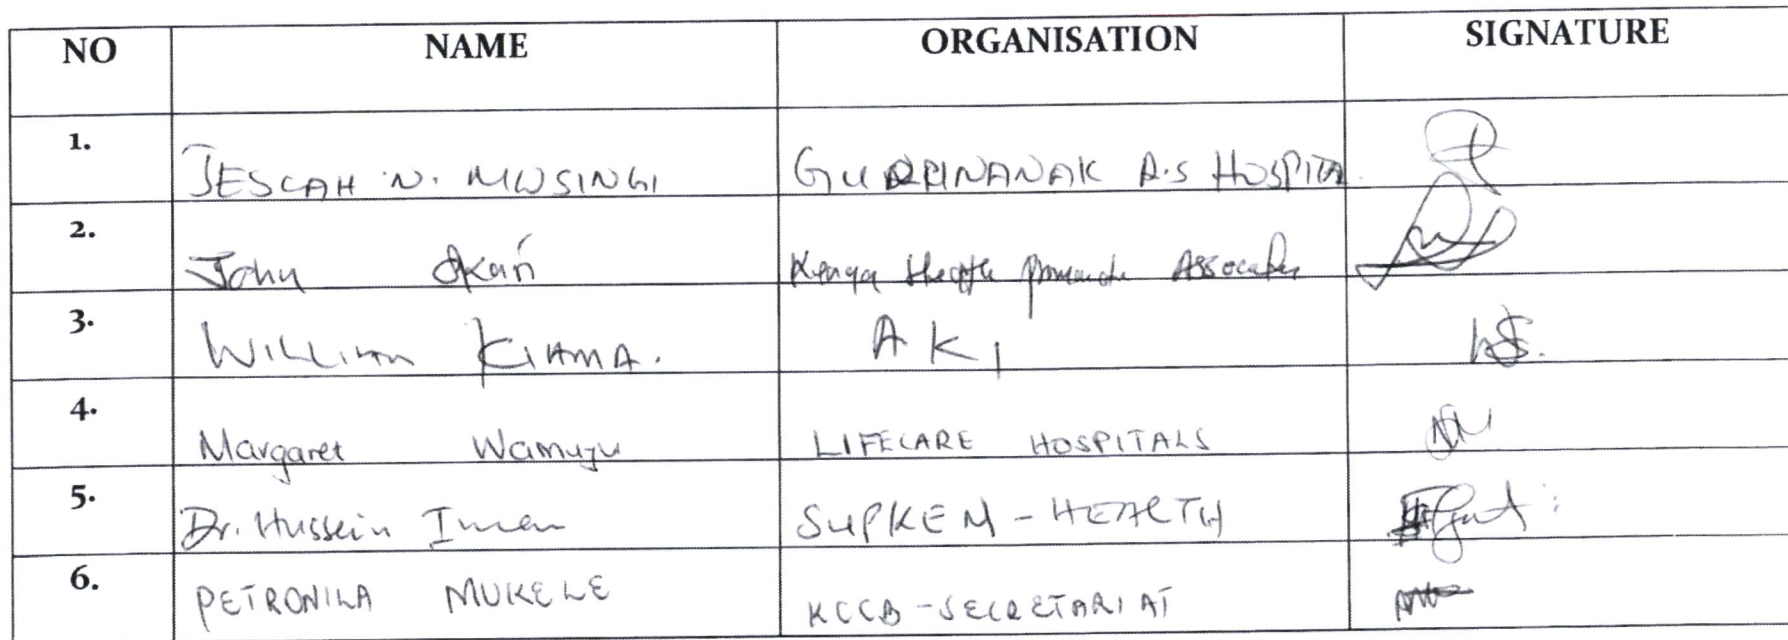 NO NAME ORGANISATION SIGNATURE
1. JESCAH N. MWSINGI GURUNANAK R.S HOSPITAL
2. John
Kenya Health
3. WILLIAM KIAMA. AKI
4. Margaret Wamuyu LIFECARE HOSPITALS
5. Dr. Hussein Iman SUPKEM - HEALTH
6. PETRONILA MUKELE KCCB - SECRETARIAT